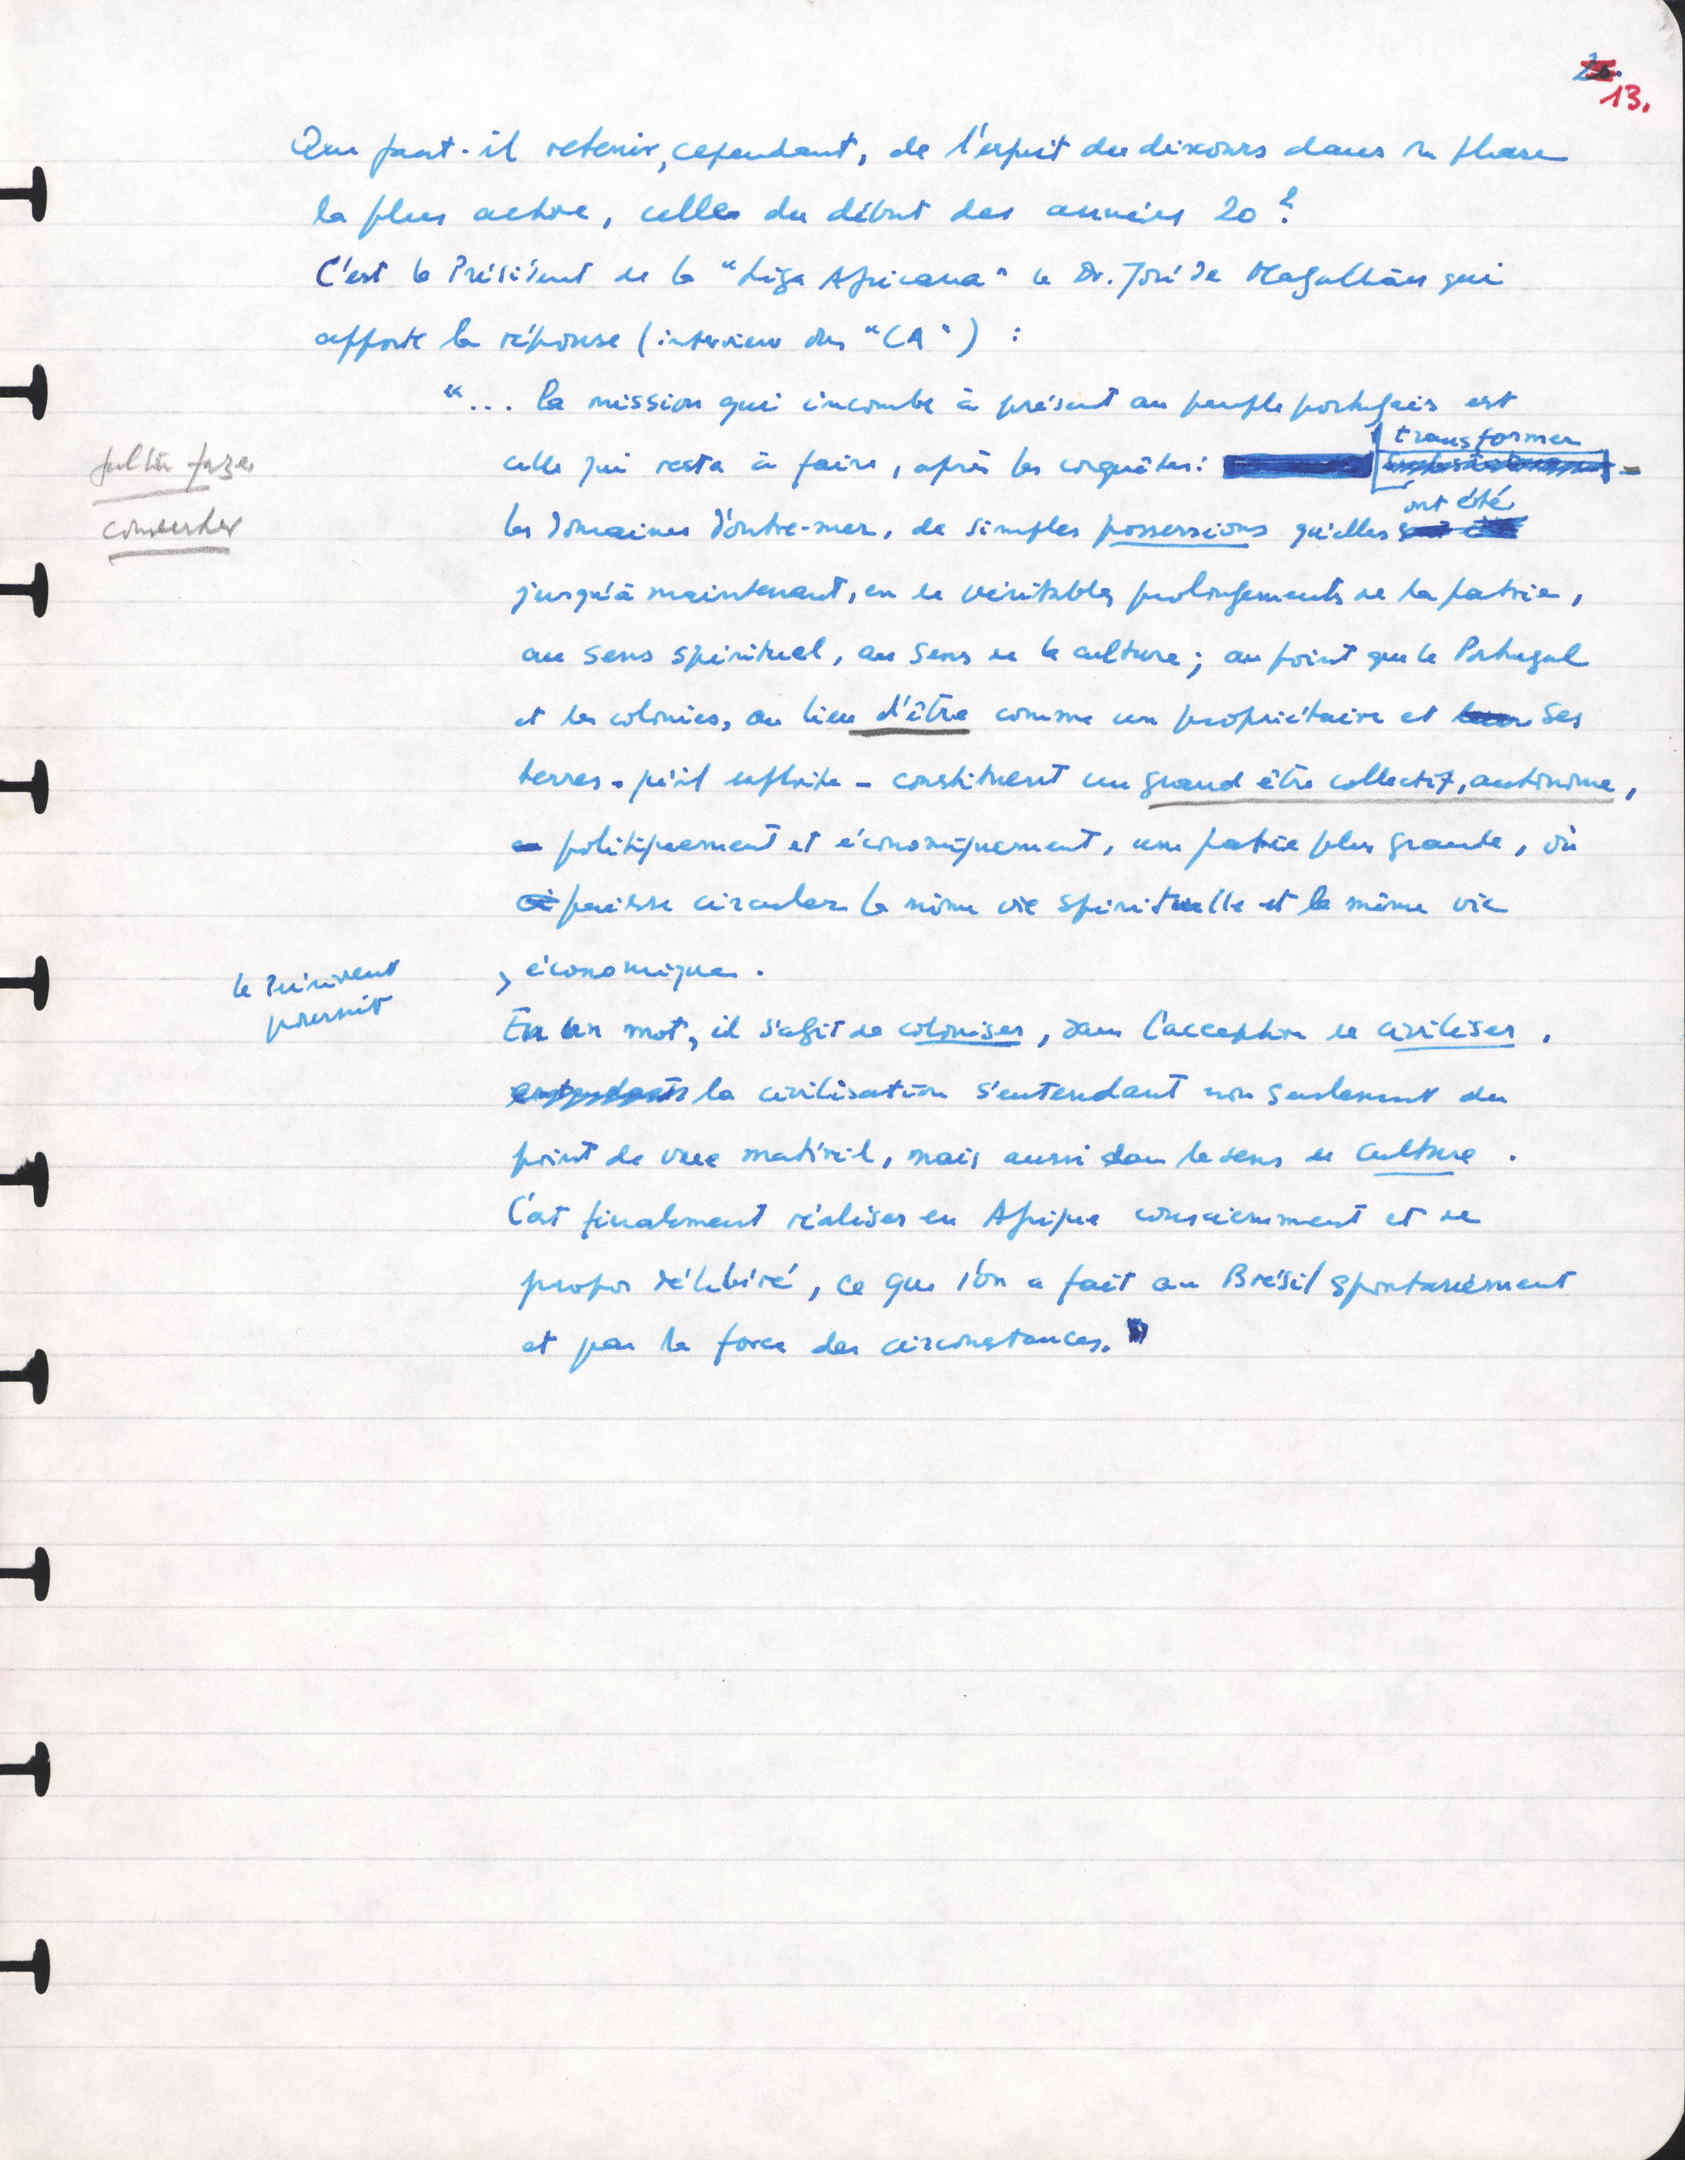 13.
Que faut-il retenir, cependant, de l'esprit du discours dans sa phase
la plus active, celle du début des années 20?
C'est le Président de la "Liga Africana" le Dr. José de Magalhães qui
apporte la réponse (interview au "CA") :
"... la mission qui incombe à présent au peuple portugais est
transformer
celle qui resta à faire, après les conquêtes:
ont été
les domaines d'outre-mer, de simples possessions qu'elles
jusqu'à maintenant, en de véritables prolongements de la patrie,
au sens spirituel, au sens de la culture; au point que le Portugal
et les colonies, au lieu d'être comme un propriétaire et ses
terres - qu'il exploite - constituent un grand être collectif, autonome,
politiquement et économiquement, une patrie plus grande, où
puisse circuler la même vie spirituelle et la même vie
économique.
le Président
poursuit
En un mot, il s'agit de coloniser, dans l'acception de civiliser,
la civilisation s'entendant non seulement du
point de vue matériel, mais aussi dans le sens de culture.
C'est finalement réaliser en Afrique consciemment et de
propos délibéré, ce que l'on a fait au Brésil spontanément
et par la force des circonstances."